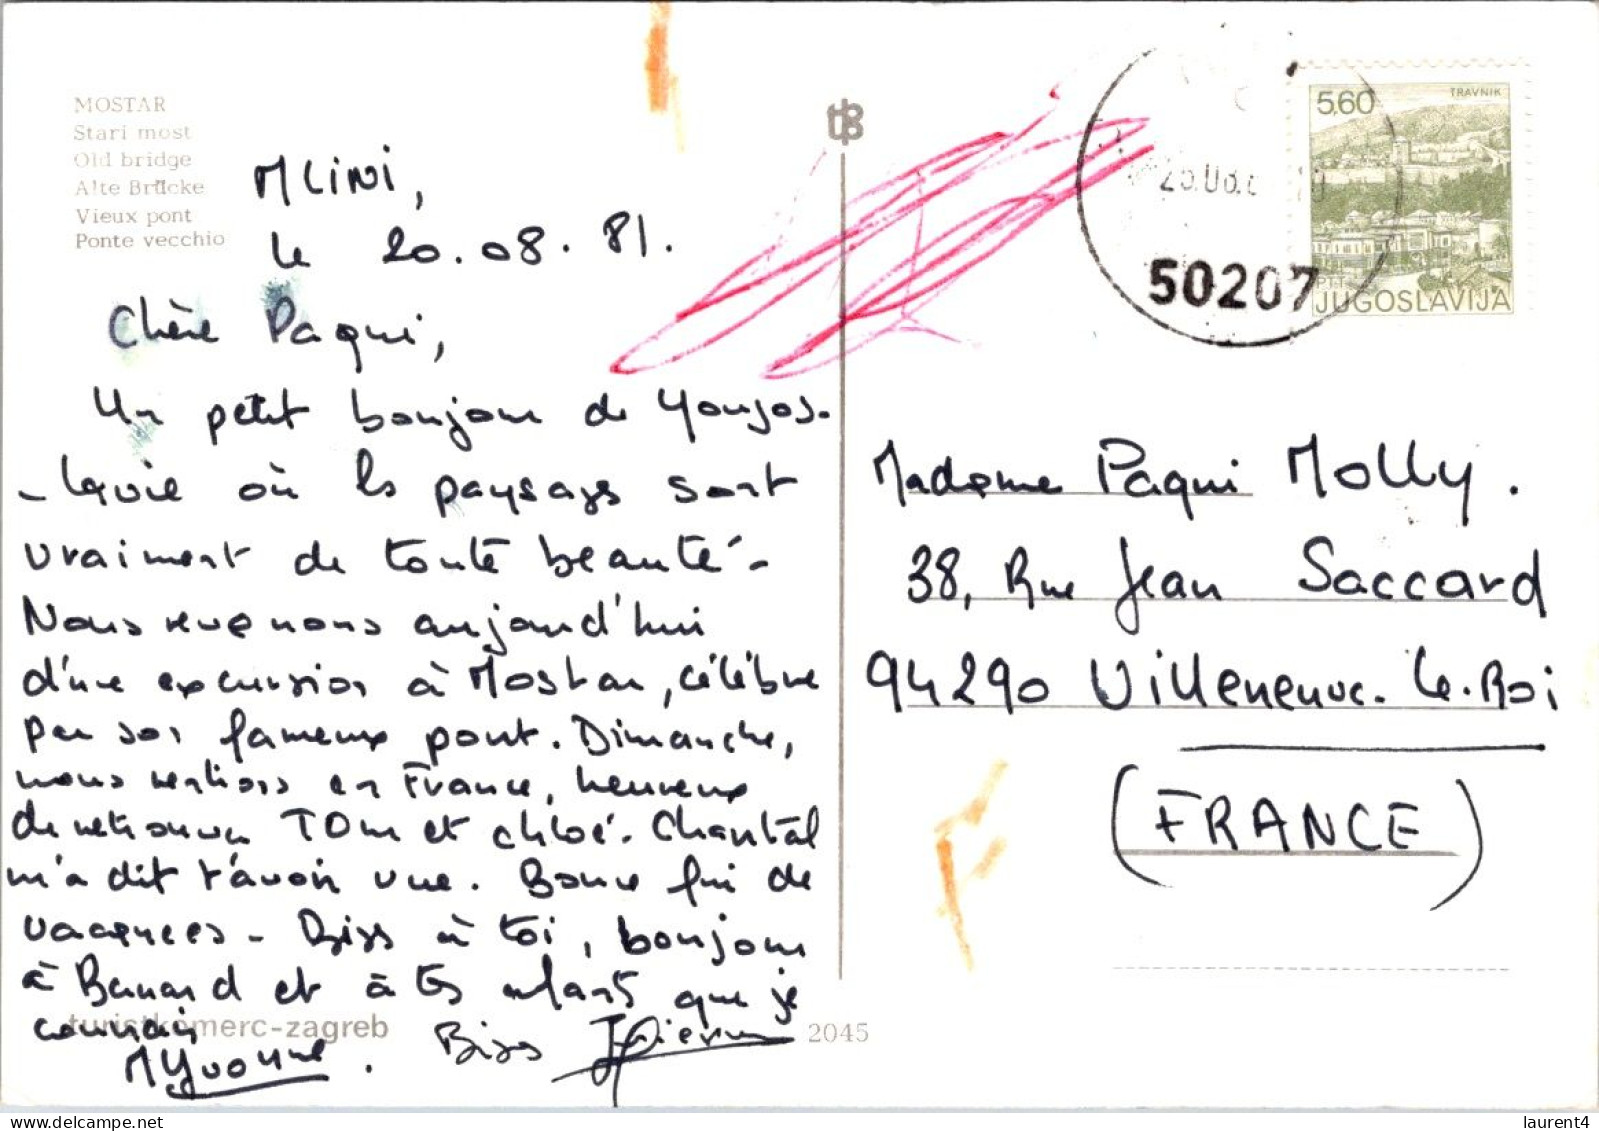 MOSTAR
Stari most
Old bridge
Alte Brücke
Vieux pont
Ponte vecchio
MLINI,
le 20.08.81.
Chère Paqui,
Un petit bonjour de Yougos-
-lavie où les paysages sont
vraiment de toute beauté-
Nous revenons aujourd'hui
d'une excursion à Mostar, célèbre
par son fameux pont. Dimanche,
nous rentrons en France, heureux
de retrouver TOM et chloé. Chantal
m'a dit t'avoir vue. Bonne fin de
vacances - Bises à toi, bonjour
à Bernard et à tes enfants que je
connais
MYvonne. Bises JPierre
turistkomerc-zagreb
2045
50207
5,60
TRAVNIK
PTT
JUGOSLAVIJA
Madame Paqui MOLLy.
38, Rue Jean Saccard
94290 Villeneuve-Le-Roi
(FRANCE)
www.delcampe.net
laurent4